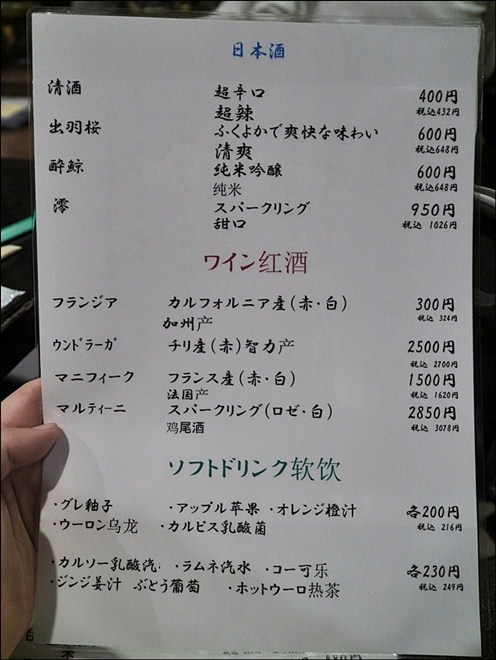 日本酒
清酒 超辛口 400円
超辣 税込432円
出羽桜 ふくよかで爽快な味わい 600円
清爽 税込648円
酔鯨 純米吟醸 600円
纯米 税込648円
澪 スパークリング 950円
甜口 税込 1026円
ワイン红酒
フランジア カルフォルニア産(赤・白) 300円
加州产 税込 324円
ウンドラーガ チリ産(赤)智力产 2500円
税込 2700円
マニフィーク フランス産(赤・白) 1500円
法国产 税込 1620円
マルティーニ スパークリング(ロゼ・白) 2850円
鸡尾酒 税込 3078円
ソフトドリンク软饮
・グレ釉子 ・アップル苹果 ・オレンジ橙汁 各200円
・ウーロン乌龙 ・カルピス乳酸菌 税込 216円
・カルソー乳酸汽 ・ラムネ汽水 ・コー可乐 各230円
・ジンジ姜汁 ぶどう葡萄 ・ホットウーロ热茶 税込 249円